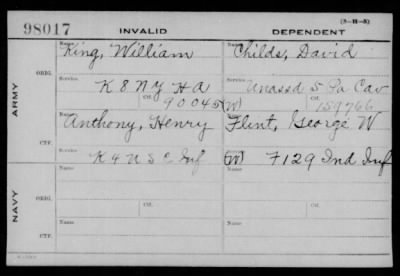 98017
INVALID
DEPENDENT
(3-11-5)
Name
King, William
Name
Childs, David
ARMY
ORIG.
Service
K 8 N Y H A
Service
Unassd 5 Pa Cav
Ctf.
90045
(W)
Ctf.
159766
Name
Anthony, Henry
Name
Flint, George W
CTF.
Service
K 4 U S C Inf
(W)
7 129 Ind Inf
NAVY
ORIG.
Name
Name
Service
Ctf.
Service
Ctf.
CTF.
Name
Name